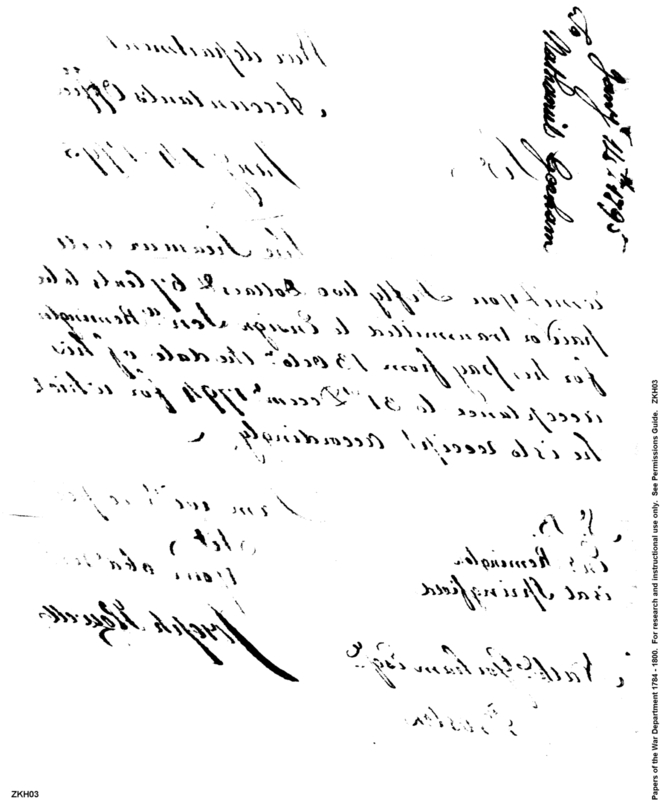 War department
Accountant's Office
Jany 14 1795
Sir
The Treasurer will
remit you Fifty two Dollars & 67 Cents to be
paid or transmitted to Ensign Remington
for his pay from 13 Octo: the date of his
acceptance to 31st Decem 1794 for which
he is to receipt accordingly.
I am
Sir
your
Joseph Howell
N. B.
Ens Remington
is at Springfield
Nath Gorham Esqr
Boston
Jany 14th 1795
To
Nathaniel Gorham
Papers of the War Department 1784 - 1800. For research and instructional use only. See Permissions Guide. ZKH03
ZKH03